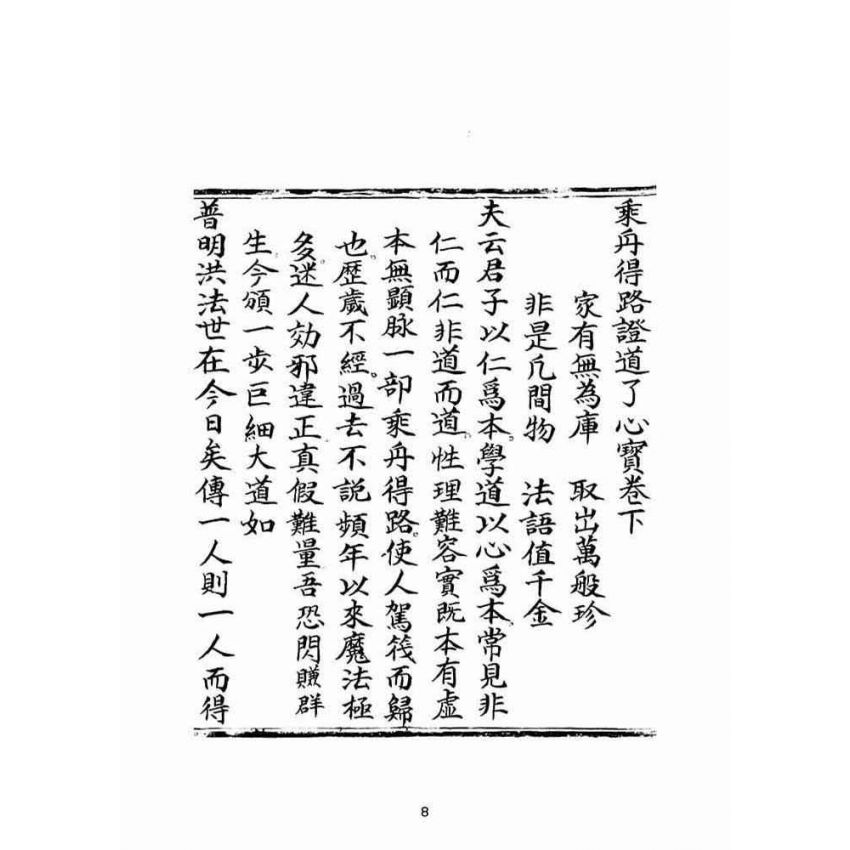 乘舟得路證道了心寶卷下
家有無為庫　取出萬般珍
非是凡間物　法語值千金
夫云君子以仁爲本。學道以心爲本。常見非
仁而仁非道而道。性理難容實既本有虛
本無顯脉一部乘舟得路。使人駕筏而歸
也。歷歲不經。過去不說頻年以來魔法極
多。迷人効邪違正真假難量吾恐閃賺群
生。今頒一步巨細大道如
普明洪法世在今日矣傳一人則一人而得
8